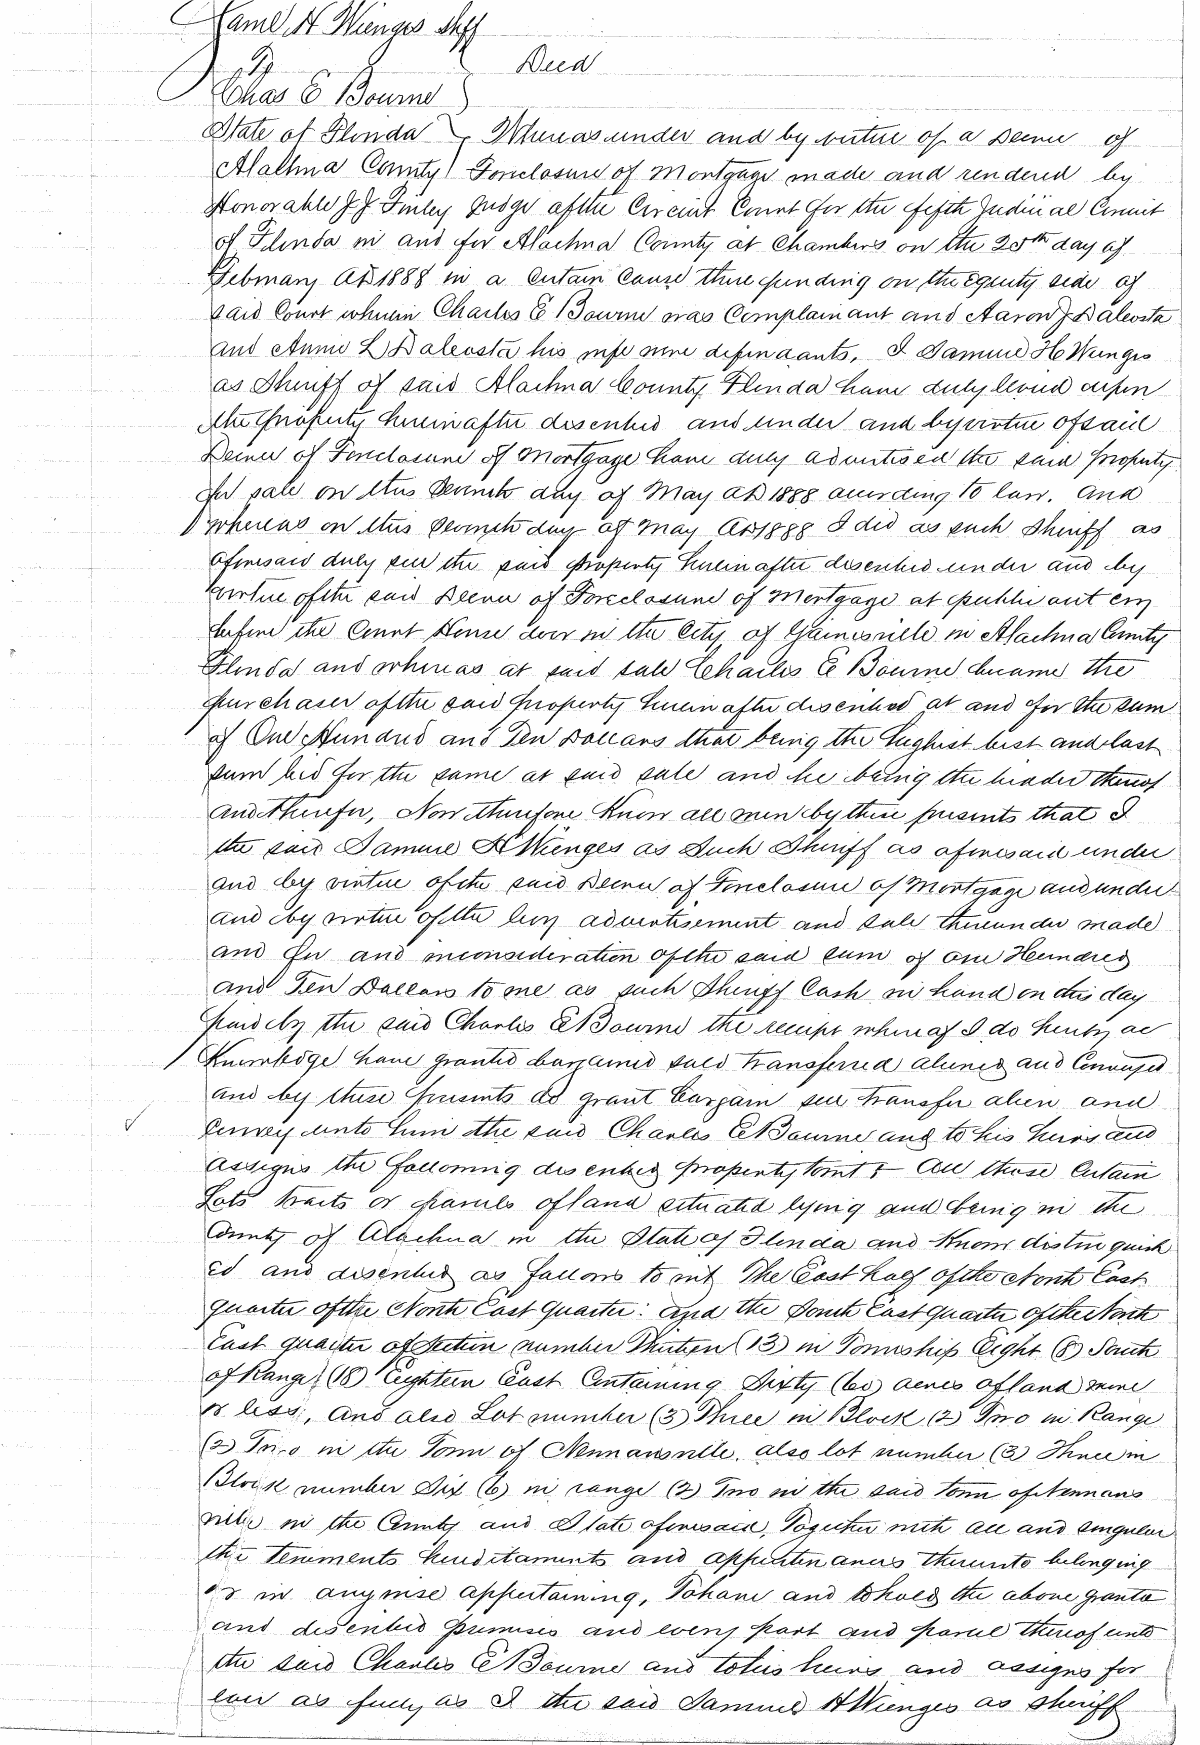 Saml H Wienges Shff
To Deed
Chas E Bourne
State of Florida } Whereas under and by virtue of a Decree of
Alachua County } Foreclosure of Mortgage made and rendered by
Honorable J J Finley Judge of the Circuit Court for the fifth Judicial Circuit
of Florida in and for Alachua County at Chambers on the 25th day of
February AD 1888 in a Certain Cause there pending on the Equity side of
said Court wherein Charles E Bourne was Complainant and Aaron J Dalcosta
and Annie L Dalcosta his wife were defendants, I Samuel H Wienges
as Sheriff of said Alachua County Florida have duly levied upon
the property herein after described and under and by virtue of said
Decree of Foreclosure of Mortgage have duly advertised the said property
for sale on this Seventh day of May AD 1888 according to law. And
whereas on this Seventh day of May AD 1888 I did as such Sheriff as
aforesaid duly sell the said property herein after described under and by
virtue of the said Decree of Foreclosure of Mortgage at public out cry
before the Court House door in the City of Gainesville in Alachua County
Florida and whereas at said sale Charles E Bourne became the
purchaser of the said property herein after described at and for the sum
of One Hundred and Ten Dollars that being the highest best and last
sum bid for the same at said sale and he being the bidder thereof
and therefor, Now therefore Know all men by these presents that I
the said Samuel H Wienges as Such Sheriff as aforesaid under
and by virtue of the said Decree of Foreclosure of Mortgage and under
and by virtue of the levy advertisement and sale thereunder made
and for and in consideration of the said sum of One Hundred
and Ten Dollars to me as such Sheriff Cash in hand on this day
paid by the said Charles E Bourne the receipt whereof I do hereby ac
Knowledge have granted bargained sold transferred aliened and Conveyed
and by these presents do grant bargain sell transfer alien and
Convey unto him the said Charles E Bourne and to his heirs and
assigns the following described property towit :- All those Certain
Lots tracts or parcels of land situated lying and being in the
County of Alachua in the State of Florida and Known distinguish
ed and described as follows to wit The East half of the North East
quarter of the North East Quarter: and the South East Quarter of the North
East quarter of Section number Thirteen (13) in Township Eight (8) South
of Range (18) Eighteen East Containing Sixty (60) acres of land more
or less, and also Lot number (3) Three in Block (2) Two in Range
(2) Two in the Town of Newnansville, also lot number (3) Three in
Block number Six (6) in range (2) Two in the said town of Newnans
ville in the County and State aforesaid, Together with all and singular
the teniments hereditaments and appurtenances thereunto belonging
or in anywise appertaining, To have and to hold the above granted
and described premises and every part and parcel thereof unto
the said Charles E Bourne and to his heirs and assigns for
ever as fully as I the said Samuel H Wienges as sheriff